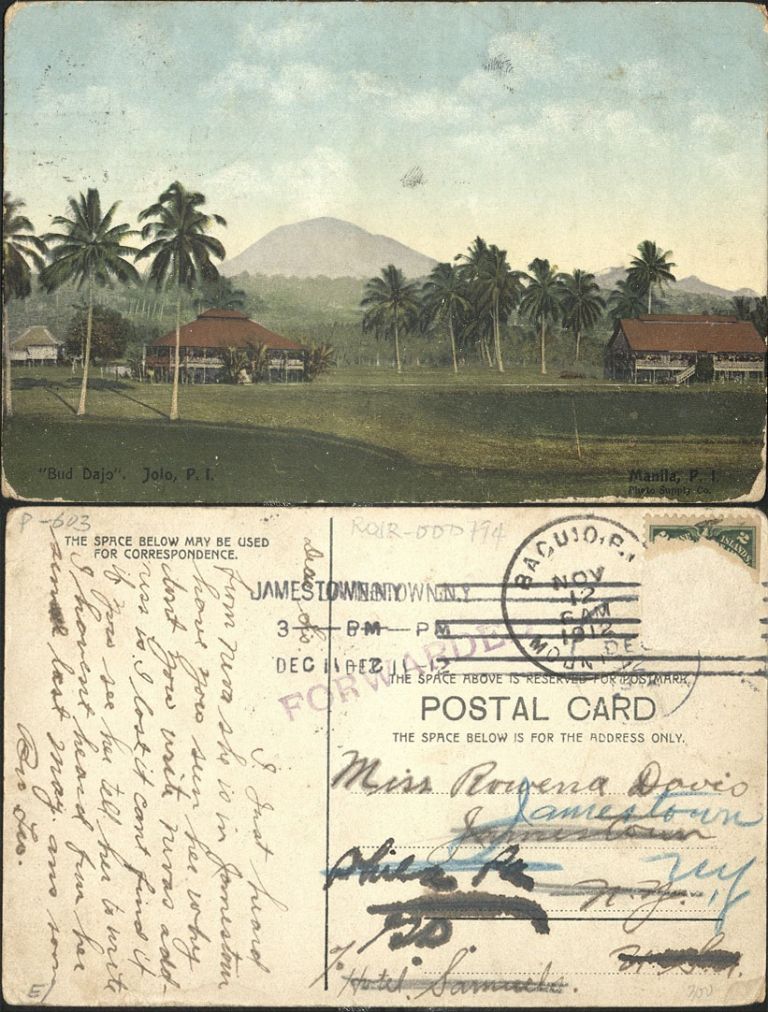 "Bud Dajo". Jolo, P. I.
Manila, P. I.
Photo Supply Co.
P-603
THE SPACE BELOW MAY BE USED
FOR CORRESPONDENCE.
Dear Sis
I Just heard
from neva she is in Jamestown
have you seen her why
dont you write nevas add-
riss is I lost it cant find it
if you see her tell her to write
I havent heard from her
since last may. ans soon
Bro Leo.
E
ROJR-000794
JAMESTOWN, N.Y.
3 - PM
DEC 11
FORWARDED
BAGUIO, P.I.
NOV
12
6 AM
1912
MOUNTAIN
2
ISLANDS
THE SPACE ABOVE IS RESERVED FOR POSTMARK.
POSTAL CARD
THE SPACE BELOW IS FOR THE ADDRESS ONLY.
Miss Rowena Davis
Jamestown
Jamestown
Phila Pa
N.Y.
N.Y.
% Hotel Samuels.
300